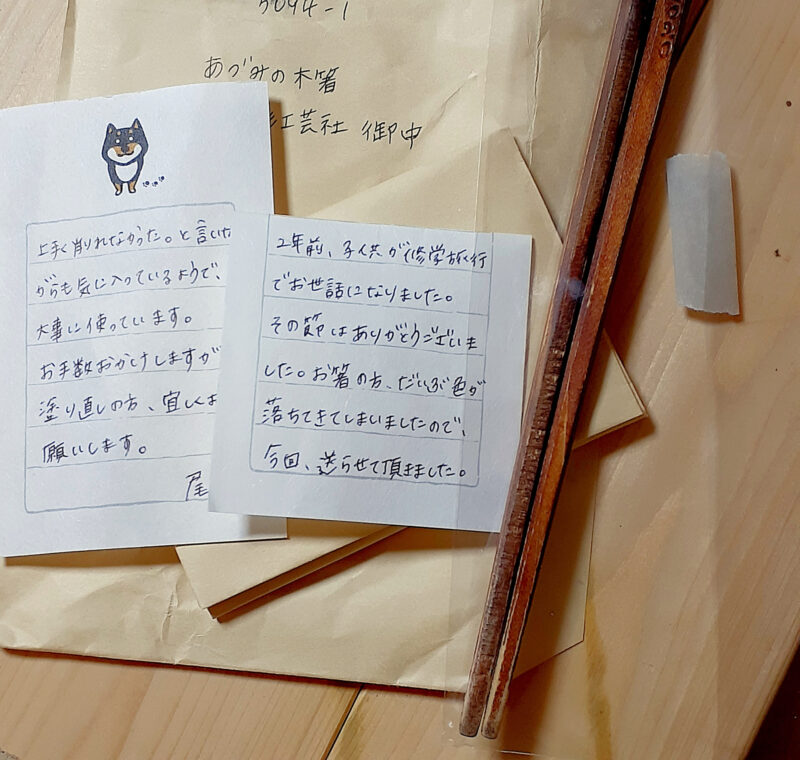 5094-1
あづみの木箸
工芸社 御中
2年前、子供が修学旅行
でお世話になりました。
その節はありがとうございま
した。お箸の方、だいぶ色が
落ちてきてしまいましたので、
今回、送らせて頂きました。
上手く削れなかった。と言いな
がらも気に入っているようで、
大事に使っています。
お手数おかけしますが
塗り直しの方、宜しくお
願いします。
尾